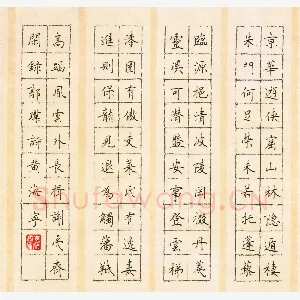 京華遊俠窟山林隱遁棲
朱門何足榮未若托蓬藜
臨源挹清波陵岡掇丹荑
靈溪可潛盤安事登雲梯
漆園有傲吏萊氏有逸妻
進則保龍見退為觸藩羝
高蹈風塵外長揖謝夷齊
錄郭璞詩黃海